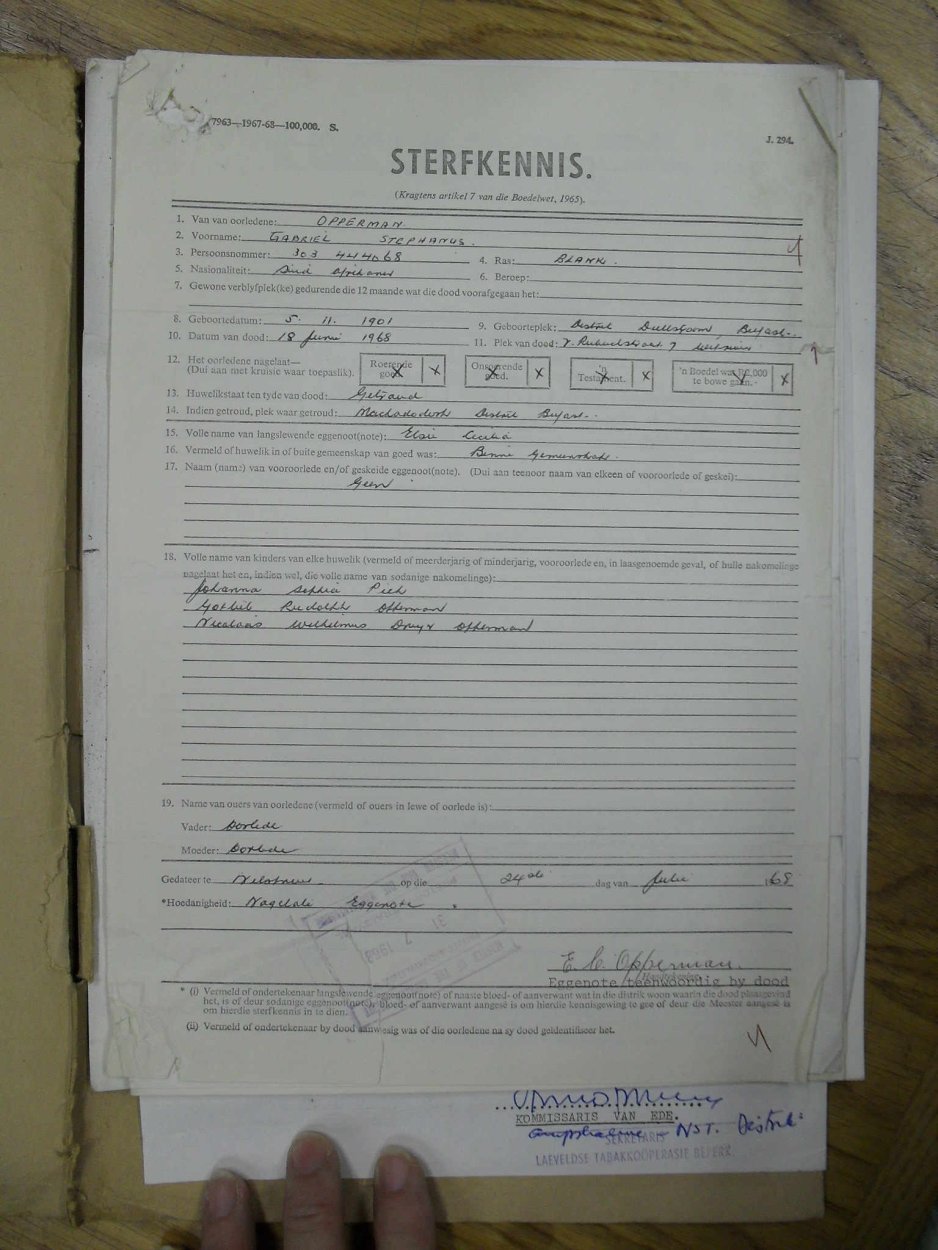 7963—1967-68—100,000. S.
J. 294.
STERFKENNIS.
(Kragtens artikel 7 van die Boedelwet, 1965).
1. Van van oorledene: OPPERMAN
2. Voorname: GABRIEL STEPHANUS.
3. Persoonsnommer: 303 444068 4. Ras: BLANK.
5. Nasionaliteit: Suid Afrikaner 6. Beroep:
7. Gewone verblyfplek(ke) gedurende die 12 maande wat die dood voorafgegaan het:
8. Geboortedatum: 5. 11. 1901 9. Geboorteplek: Distrik Dullstroom, Belfast.
10. Datum van dood: 18 Junie 1968 11. Plek van dood: 7 Nelspruit
12. Het oorledene nagelaat—
(Dui aan met kruisie waar toepaslik).
Roerende goed. X
Onroerende goed. X
'n Testament. X
'n Boedel wat R2,000 te bowe gaan. X
13. Huwelikstaat ten tyde van dood: Getroud
14. Indien getroud, plek waar getroud: Machadodorp Distrik Belfast.
15. Volle name van langslewende eggenoot(note): Elsie Cecilia
16. Vermeld of huwelik in of buite gemeenskap van goed was: Binne Gemeenskap.
17. Naam (name) van vooroorlede en/of geskeide eggenoot(note). (Dui aan teenoor naam van elkeen of vooroorlede of geskei):
Geen
18. Volle name van kinders van elke huwelik (vermeld of meerderjarig of minderjarig, vooroorlede en, in laasgenoemde geval, of hulle nakomelinge
nagelaat het en, indien wel, die volle name van sodanige nakomelinge):
Johanna Sophia
Gotlieb Rudolph Opperman
Nicolaas Wilhelmus Opperman
19. Name van ouers van oorledene (vermeld of ouers in lewe of oorlede is):
Vader: Oorlede
Moeder: Oorlede
Gedateer te Nelspruit op die 24ste dag van Julie 1968
*Hoedanigheid: Nagelate Eggenote.
31 7 1968
E. C. Opperman.
Eggenote/teenwoordig by dood
* (i) Vermeld of ondertekenaar langslewende eggenoot(note) of naaste bloed- of aanverwant wat in die distrik woon waarin die dood plaasgevind
het, is of deur sodanige eggenoot(note), bloed- of aanverwant aangesê is om hierdie kennisgewing te gee of deur die Meester aangesê is
om hierdie sterfkennis in te dien.
(ii) Vermeld of ondertekenaar by dood aanwesig was of die oorledene na sy dood geïdentifiseer het.
KOMMISSARIS VAN EDE.
NST. Distrik
SEKRETARIS
LAEVELDSE TABAKKOÖPERASIE BEPERK.